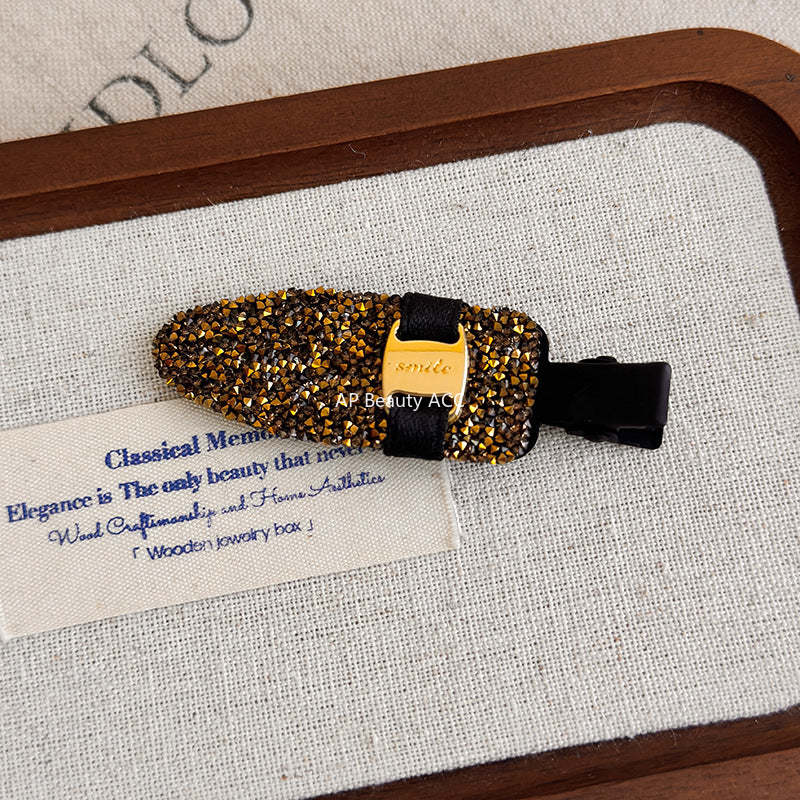 DLO
smile
AP Beauty ACC
Classical Memo
Elegance is The only beauty that never
Wood Craftsmanship and Home Aesthetics
「 Wooden jewelry box 」